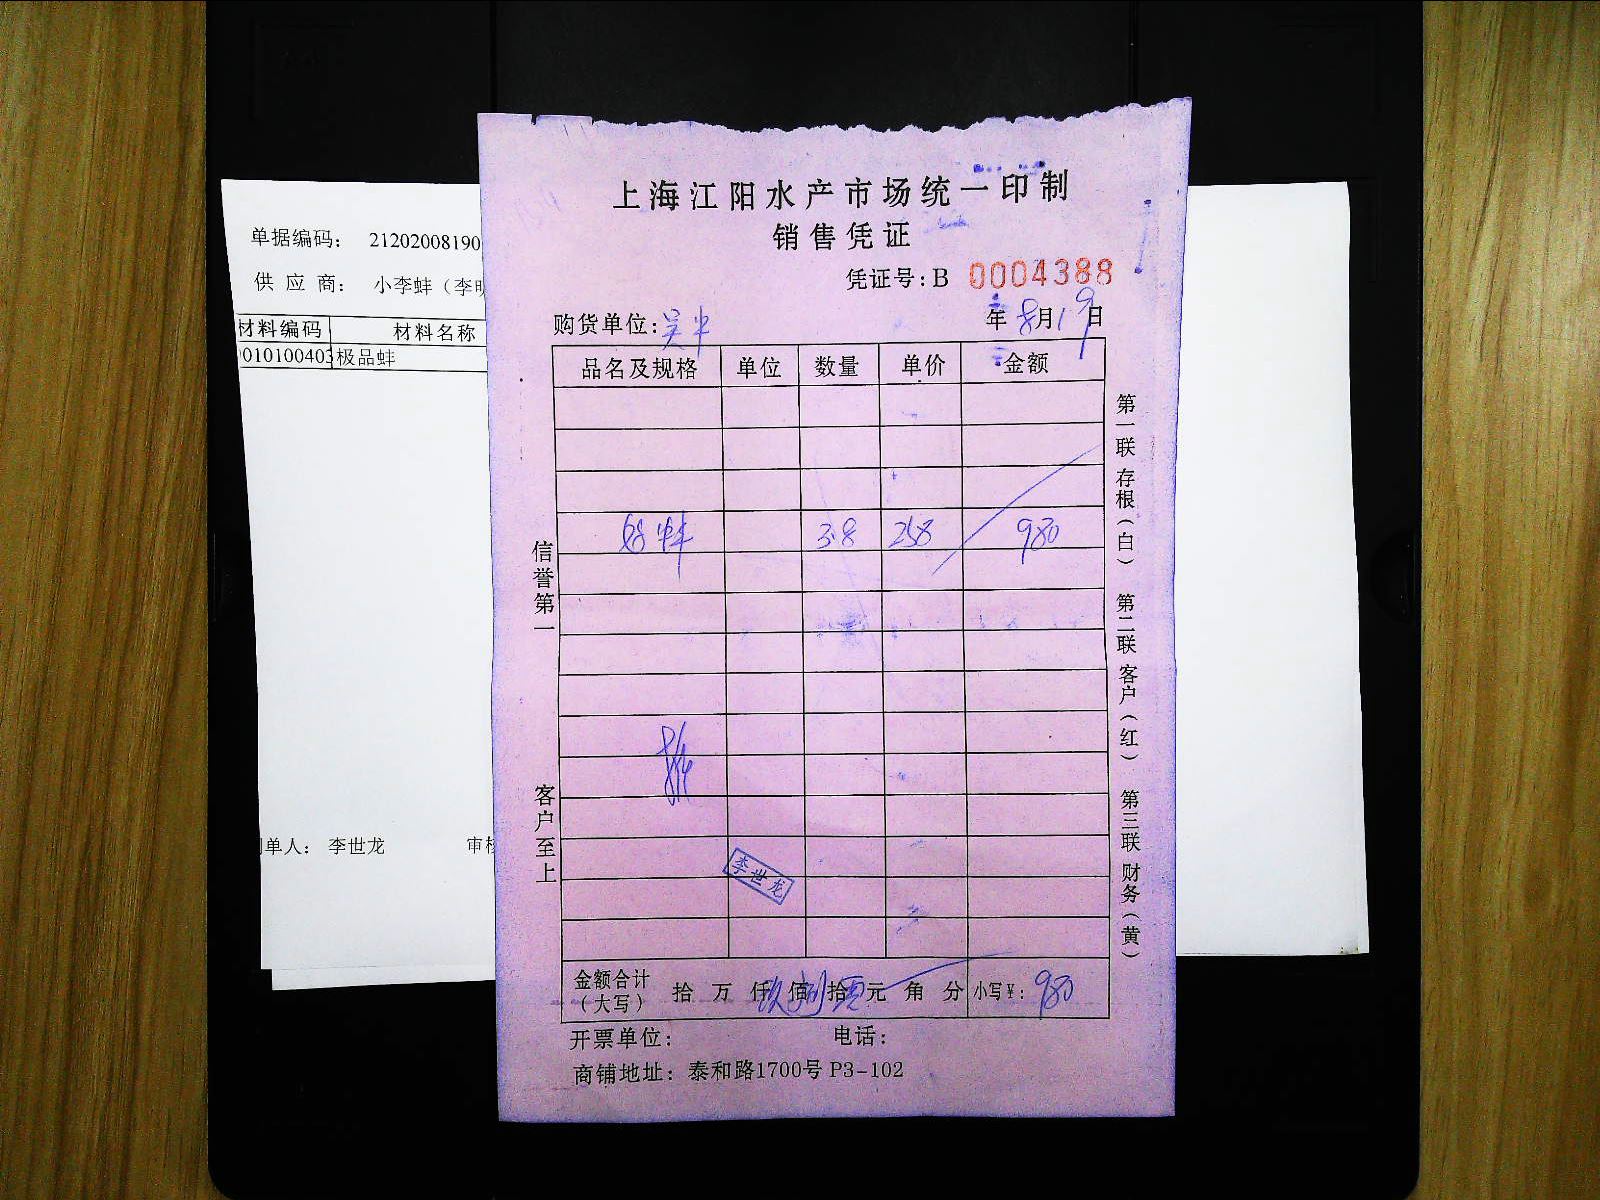 上海江阳水产市场统一印制
销售凭证
凭证号:B 0004388
购货单位: 年8月19日
品名及规格 单位 数量 单价 金额
3.8 258 980
信誉第一
客户至上
李世龙
第一联 存根(白) 第二联 客户(红) 第三联 财务(黄)
金额合计(大写) 拾 万 仟玖佰捌拾零元 角 分 小写¥: 980
开票单位: 电话:
商铺地址: 泰和路1700号 P3-102
单据编码: 21202008190
供应商: 小李蚌(李明
材料编码 材料名称
010100403 极品蚌
单人: 李世龙 审核